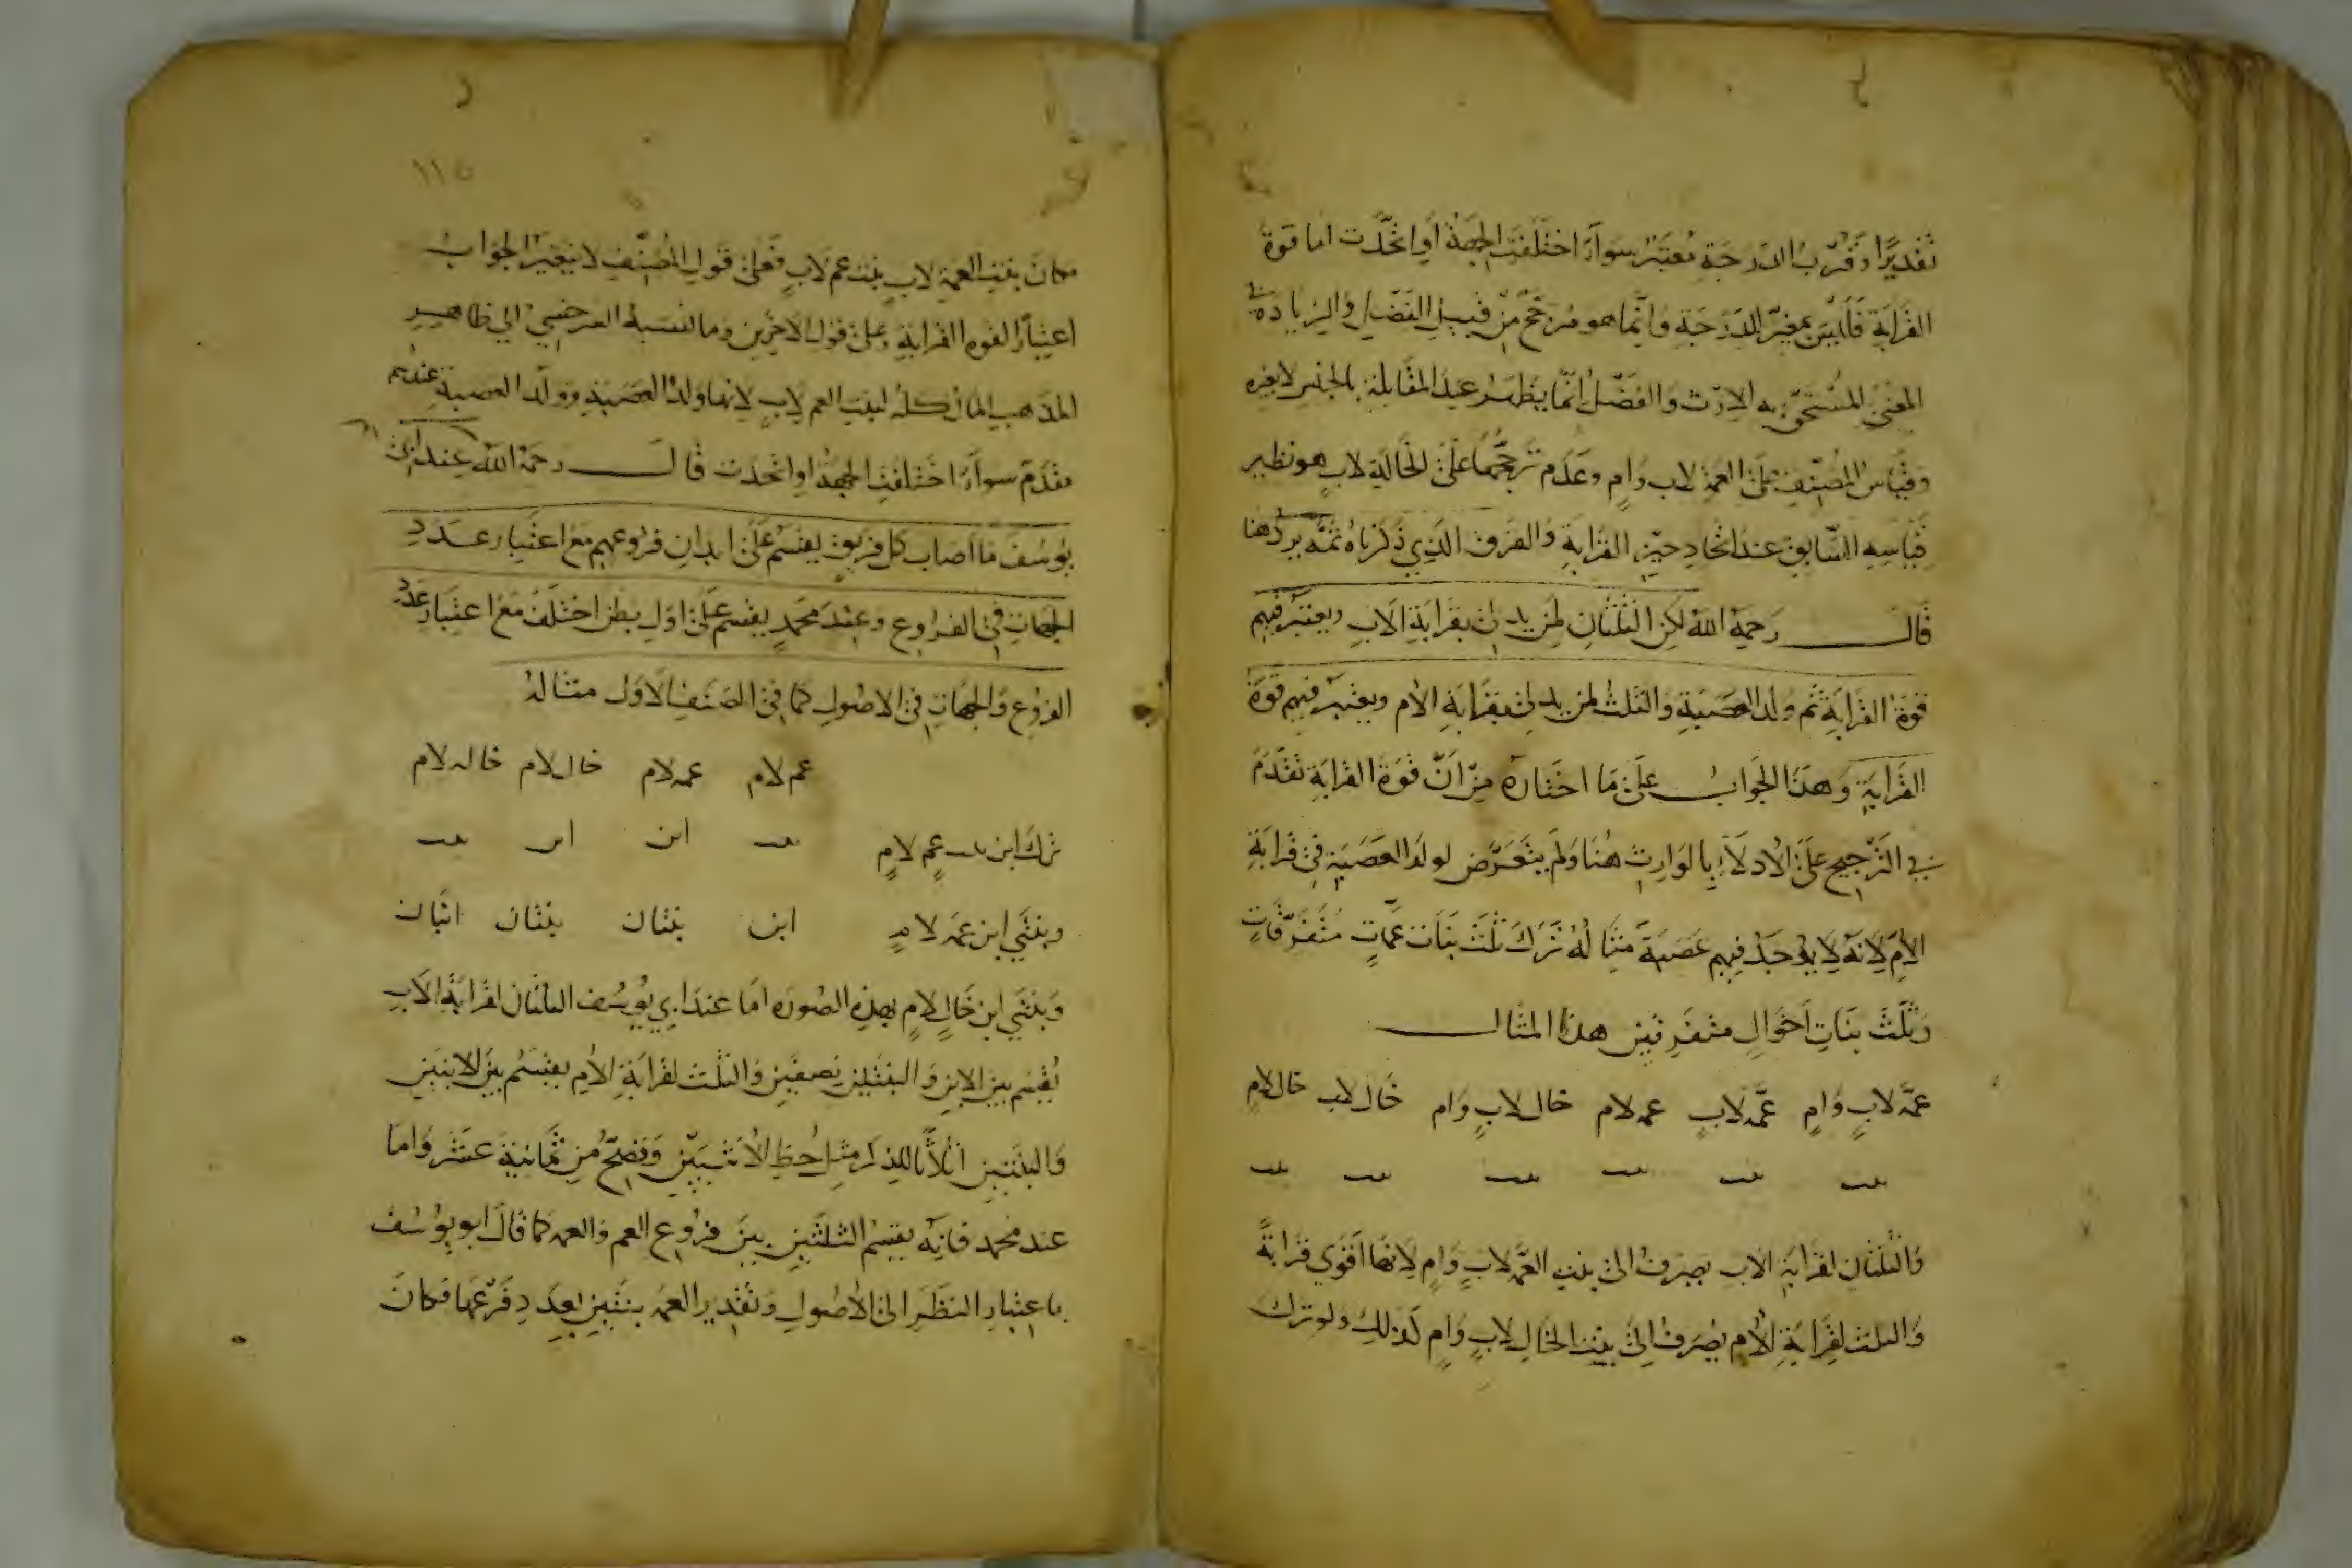 تقديرًا وقرب الدرجة معتبر سوآءً اختلفت الجهة أو اتحدت اما قوة
القرابة فليس بمغيّر للدرجة وانّما هو مرجّح من قبيل الفضل والزيادة في
المعنى المستحق به الارث والفضل انّما يظهر عند المقابلة بالجنس لا بغيره
وقياس المصنّف على العمة لاب وام وعدم ترجّحها على الخالة لابٍ هو نظير
قياسه السّابق عند اتحاد حيّز القرابة والفرق الذي ذكرناه ثمّه يردّ هنا
قال رحمه الله لكن الثلثان لمن يدلى بقرابة الاب ويعتبر فيهم
قوة القرابة ثم ولد العصبة والثلث لمن يدلى بقرابة الام ويعتبر فيهم قوة
القرابة وهذا الجواب على ما اختاره من انّ قوة القرابة تقدّم
في الترجيح على الادلآء بالوارث هنا ولم يتعرّض لولد العصبة في قرابة
الام لانه لا يوجد فيهم عصبة مثاله ترك ثلث بنات عمّاتٍ متفرّقاتٍ
وثلث بنات اخوالٍ متفرقين هذا المثال
عمّه لابٍ وام عمّه لابٍ عمه لام خال لابٍ وام خال لاب خال لام
بنت بنت بنت بنت بنت بنت
والثلثان لقرابة الاب يصرف الى بنت العمّه لابٍ وامٍ لانها اقوي قرابةً
والثلث لقرابة الام يصرف الى بنت الخال لابٍ وامٍ لذلك ولو ترك
١١٥
مكان بنت العمة لابٍ بنت عم لابٍ فعلى قول المصنّف لا يتغيّر الجواب
اعتبارًا لقوه القرابة وعلى قول الاخرين وما نسبه السرخسي الي ظاهر
المذهب المال كله لبنت العم لابٍ لانها ولد العصبة وولد العصبة عندهم
مقدّم سوآءً اختلفت الجهة او اتحدت قال رحمه الله عند ابى
يوسف ما اصاب كل فريق يقسم على ابدان فروعهم مع اعتبار عدد
الجهات في الفروع وعند محمدٍ يقسم على اول بطن اختلف مع اعتبار عدد
الفروع والجهات في الاصول كما في الصنف الاول مثاله
عم لام عمه لام خال لام خاله لام
ترك ابن بنت عمٍ لامٍ بنت ابن ابن بنت
وبنتي ابن عمه لامٍ ابن بنتان بنتان ابنان
وبنتي ابن خالٍ لامٍ بهذه الصوره اما عند ابي يوسف الثلثان لقرابة الاب
يقسم بين الابن والبنتين نصفين والثلث لقرابة الام يقسم بين الابنين
والبنتين اثلاثًا للذكر مثل حظ الانثيين وتصحّ من ثمانية عشر واما
عند محمد فانه يقسم الثلثين بين فروع العم والعمه كما قال ابو يوسف
باعتبار النظر الى الاصول وتقدير العمه بنتين بعدد فرعها فكان